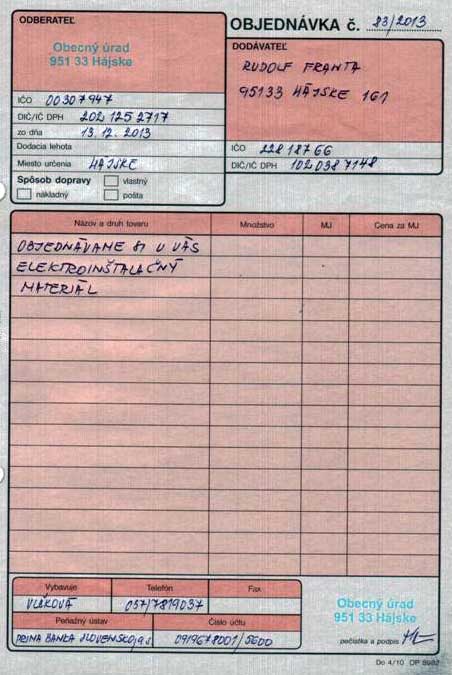 ODBERATEĽ
Obecný úrad
951 33 Hájske
IČO 00307947
DIČ/IČ DPH 202 125 2717
zo dňa 13. 12. 2013
Dodacia lehota
Miesto určenia HÁJSKE
Spôsob dopravy
vlastný
nákladný
pošta
OBJEDNÁVKA č. 83/2013
DODÁVATEĽ
RUDOLF FRANTA
95133 HÁJSKE 161
IČO 228 187 66
DIČ/IČ DPH 102 038 7148
Názov a druh tovaru Množstvo MJ Cena za MJ
OBJEDNÁVAME SI U VÁS
ELEKTROINŠTALAČNÝ
MATERIÁL
Vybavuje Telefón Fax
VLČKOVÁ 037/7819037
Peňažný ústav Číslo účtu
PRIMA BANKA SLOVENSKO, a.s. 0919678001/5600
Obecný úrad
951 33 Hájske
pečiatka a podpis
Do 4/10 OP 8982